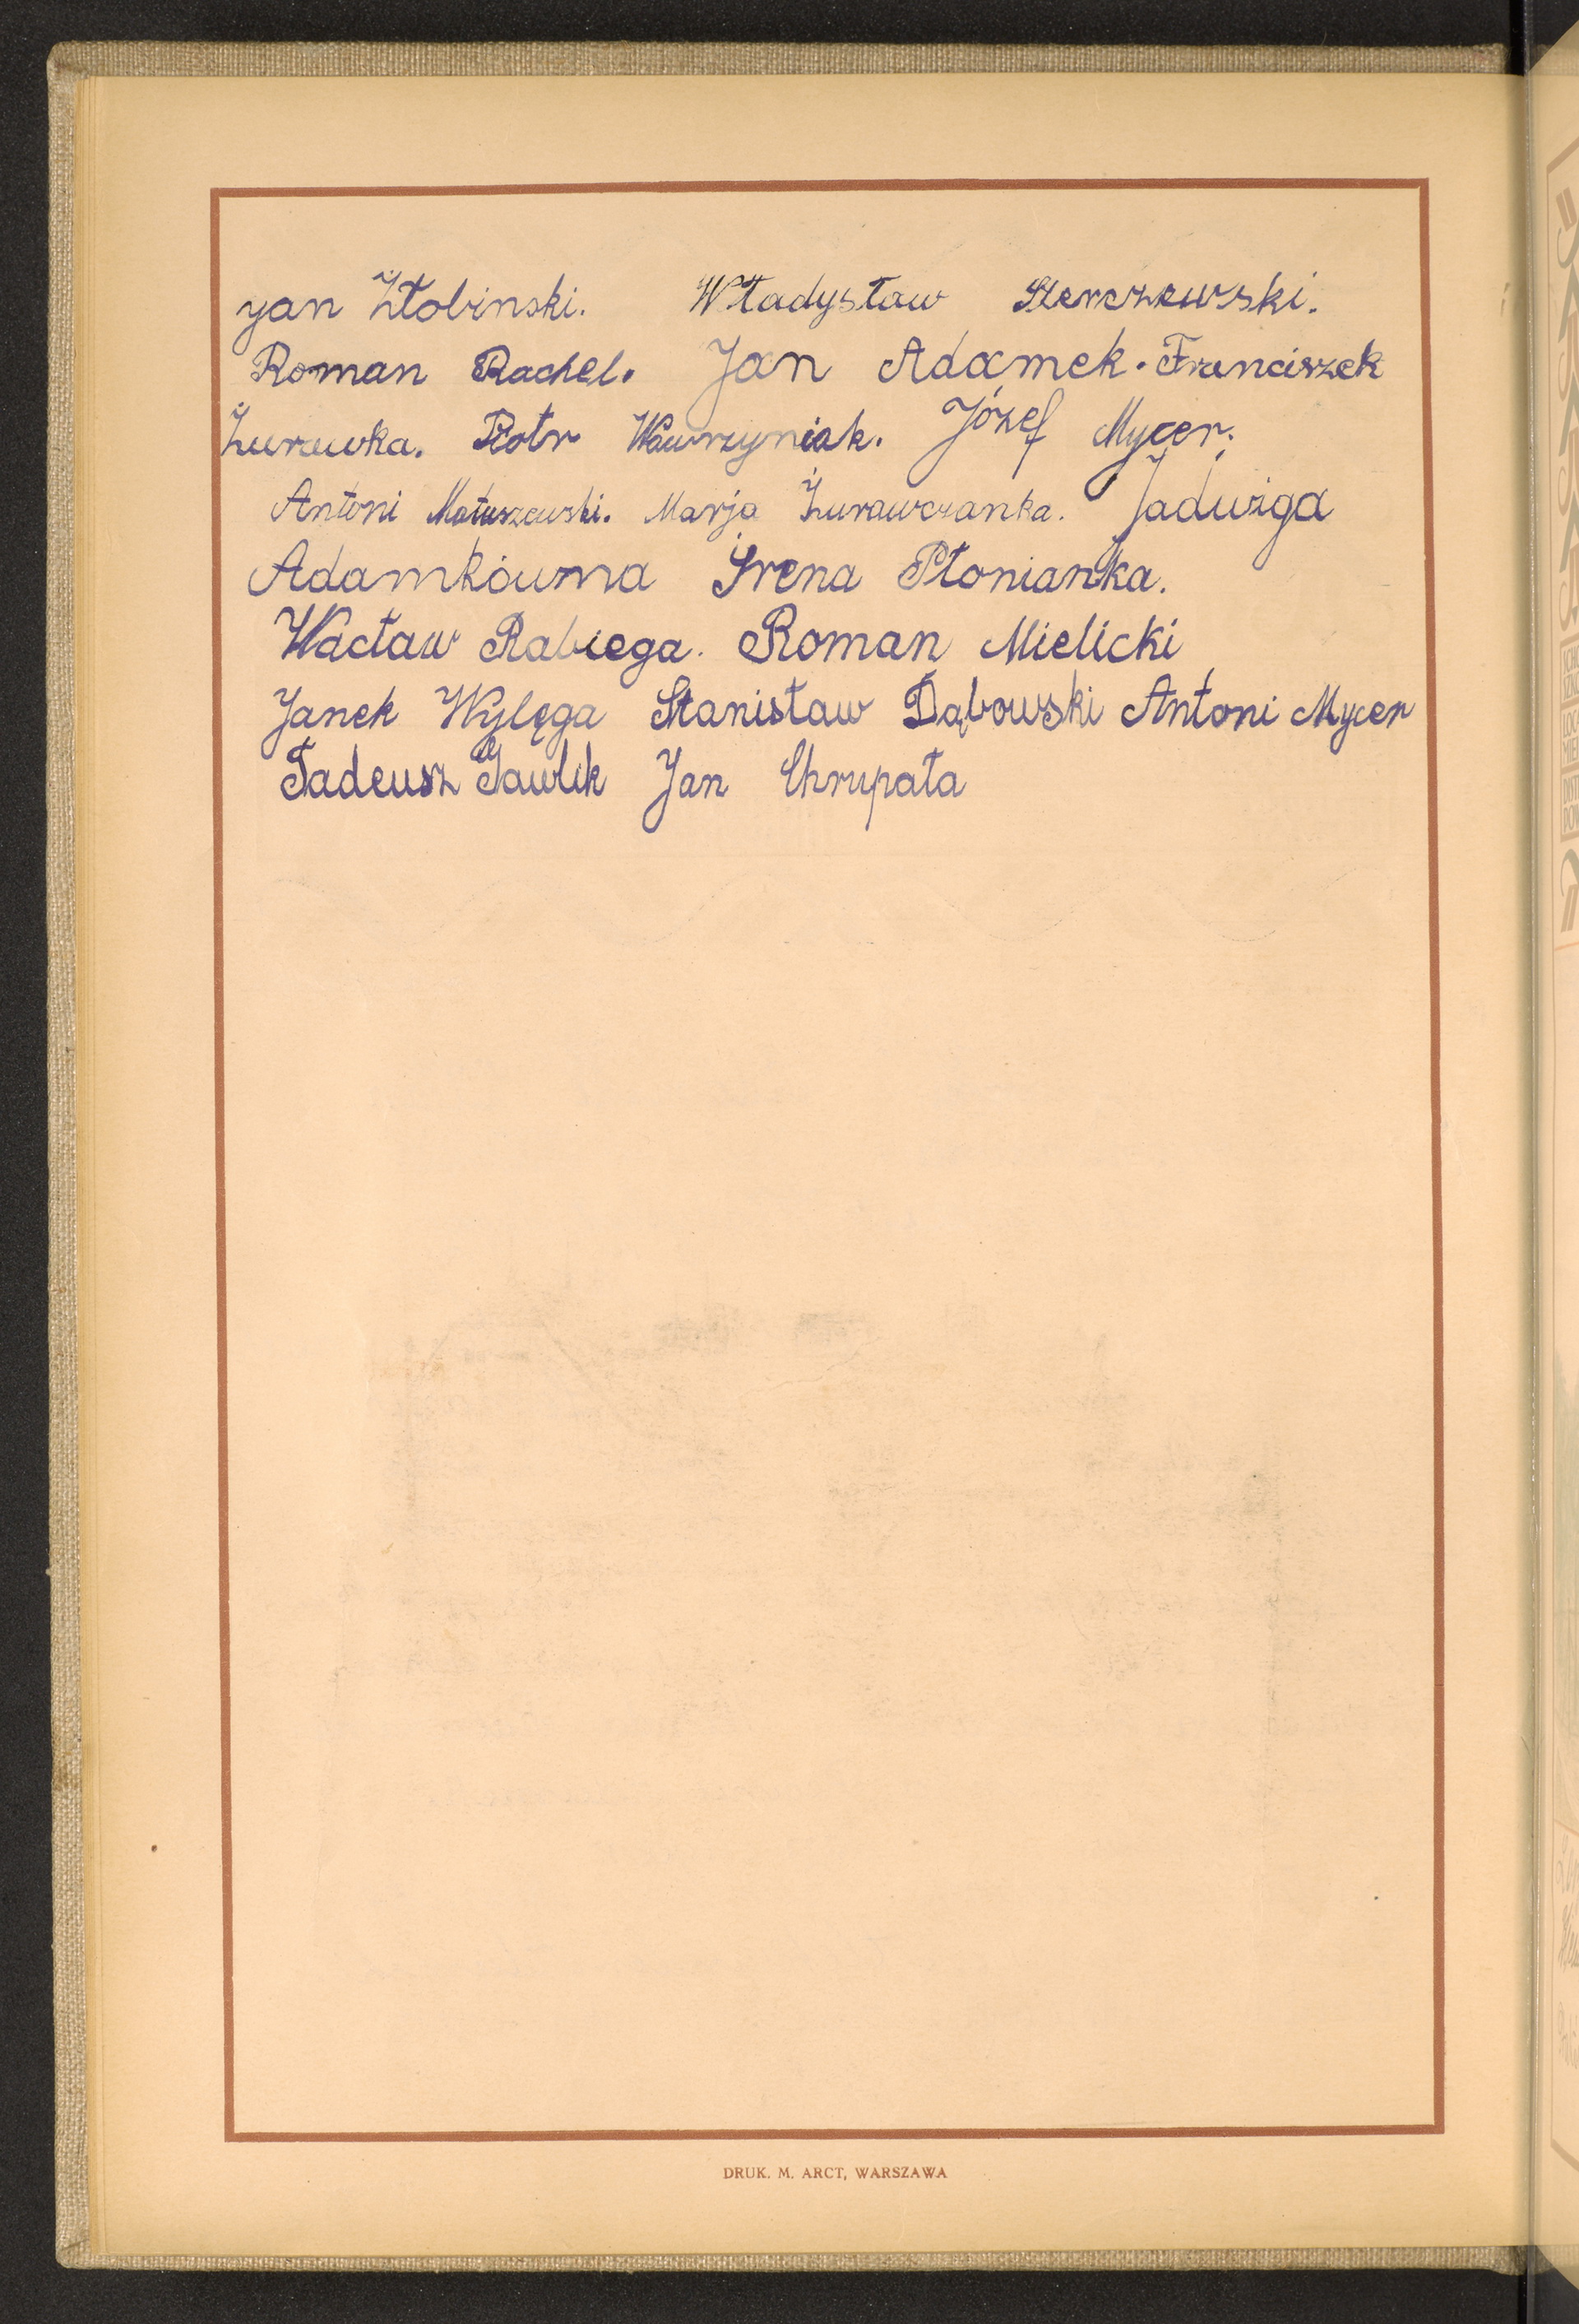 Jan Żłobinski. Władysław Sterczewski.
Roman Rachel. Jan Adamek. Franciszek
Żurawka. Piotr Wawrzyniak. Józef Mycer.
Antoni Matuszewski. Marja Żurawczanka. Jadwiga
Adamkówna Irena Płonianka.
Wacław Rabiega. Roman Mielicki
Janek Wylęga Stanisław Dąbowski Antoni Mycer
Tadeusz Pawlik Jan Chrupała
DRUK. M. ARCT, WARSZAWA